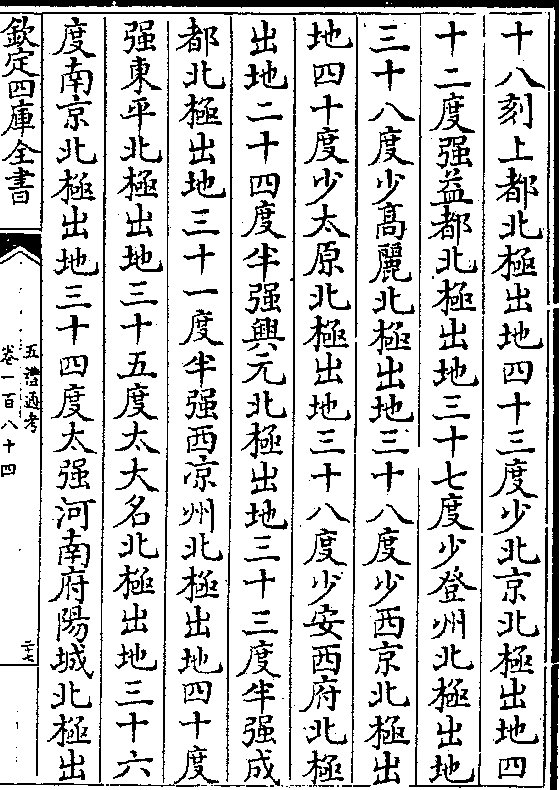 十八刻上都北極出地四十三度少北京北極出地四
十二度强益都北極出地三十七度少登州北極出地
三十八度少高麗北極出地三十八度少西京北極出
地四十度少太原北極出地三十八度少安西府北極
出地二十四度半强興元北極出地三十三度半强成
都北極出地三十一度半强西凉州北極出地四十度
强東平北極出地三十五度太大名北極出地三十六
度南京北極出地三十四度太强河南府陽城北極出
欽定四庫全書
五禮通考
卷一百八十四
二十七